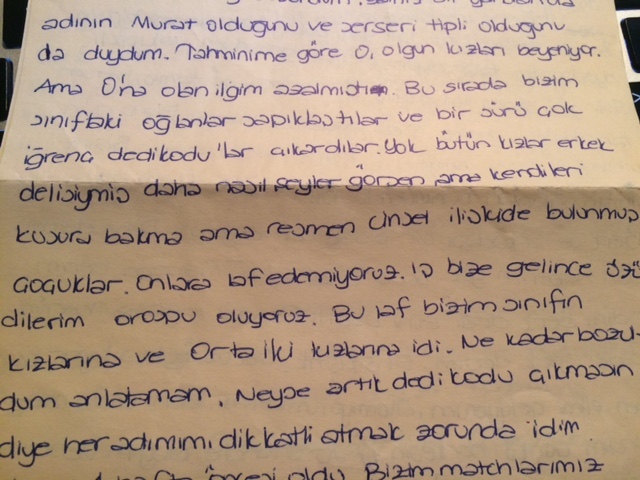 adının Murat olduğunu ve serseri tipli olduğunu
da duydum. Tahminime göre O, olgun kızları beğeniyor.
Ama O'na olan ilgim azalmıştı. Bu sırada bizim
sınıftaki oğlanlar sapıklaştılar ve bir sürü çok
iğrenç dedikodu'lar çıkardılar. Yok bütün kızlar erkek
delisiymiş daha nasıl şeyler görsen ama kendileri
kusura bakma ama resmen cinsel ilişkide bulunmuş
çocuklar. Onlara laf edemiyoruz. İş bize gelince özü
dilerim orospu oluyoruz. Bu laf bizim sınıfın
kızlarına ve Orta iki kızlarına idi. Ne kadar bozul-
dum anlatamam. Neyse artık dedikodu çıkmasın
diye her adımımı dikkatli atmak zorunda idim
öncesi oldu Bizim matchlarımız